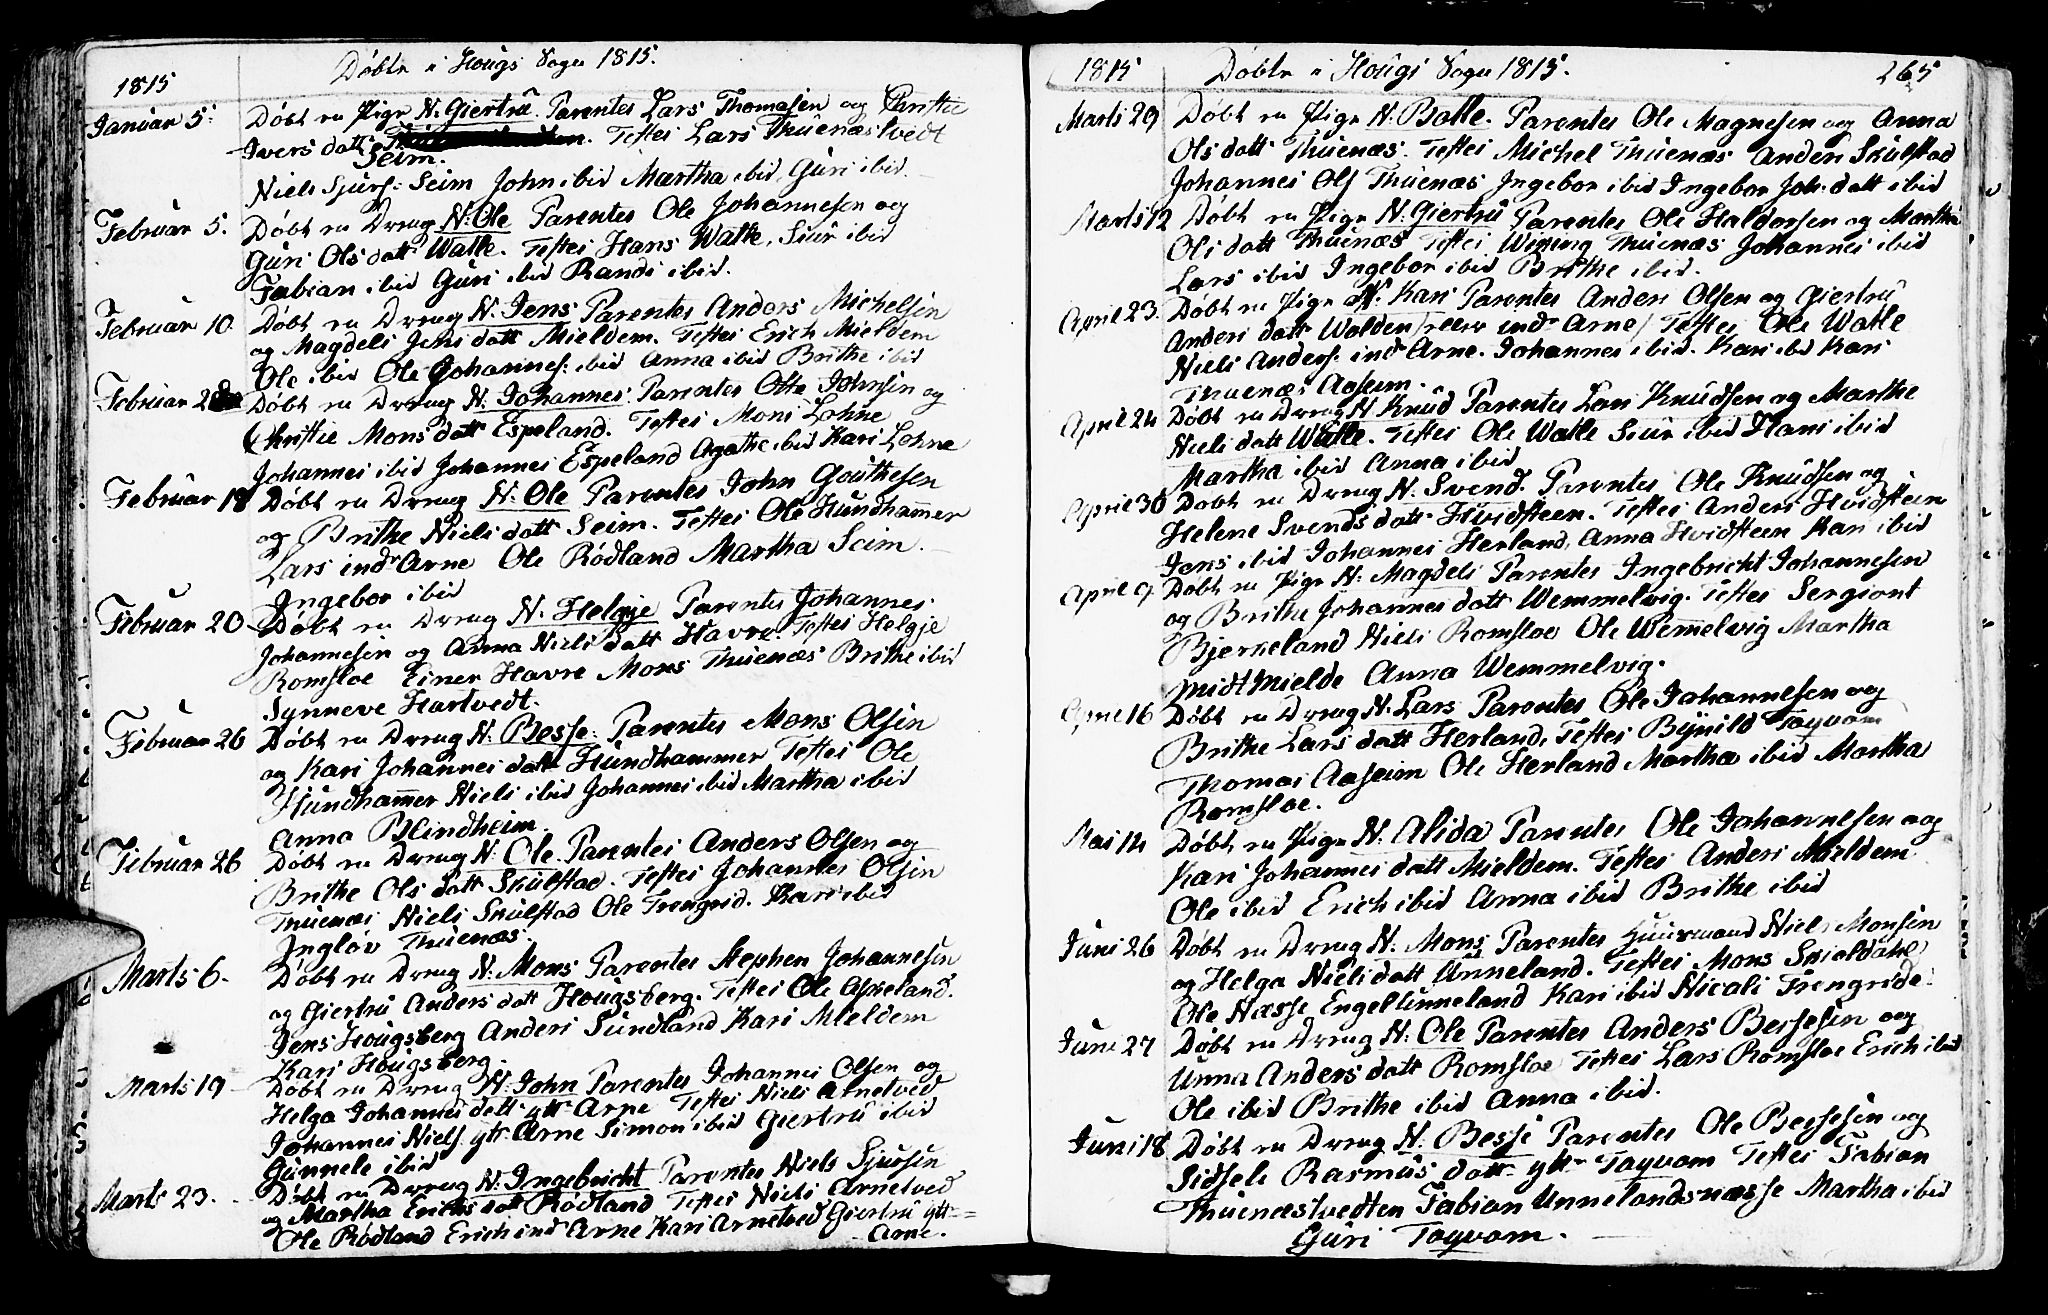 Døbte i Hougs Sogn 1815.
1815
Januar 5. Døbt en Pige N. Giertru. Parentes Lars Thomasen og Christie
Ivers datt Testes Lars Thuenæstvedt
Seim.
Niels Sjurs: Seim John ibid Martha ibid, Guri ibid.
Februar 5. Døbt en Dreng N. Ole Parentes Ole Johannesen og
Guri Ols datt Watle. Testes Hans Watle, Siur ibid
Fabian ibid Guri ibid Randi ibid.
Februar 10. Døbt en Dreng N. Jens Parentes Anders Michelsen
og Magdeli Jens datt Mieldem. Testes Erich Mieldem
Ole ibid Ole Johannes: ibid Anna ibid Brithe ibid
Februar Døbt en Dreng N. Johannes. Parentes Otte Johnsen og
Christie Mons datt Espeland. Testes Mons Lohne
Johannes ibid Johannes Espeland Agathe ibid Kari Lohne
Februar 18 Døbt en Dreng N. Ole Parentes John Gouthesen
og Brithe Niels datt Seim. Testes Ole Hundhammer
Lars indr Arne Ole Rødland Martha Seim.
Ingebor ibid
Februar 20 Døbt en Dreng N. Helgje Parentes Johannes
Johannesen og Anna Niels datt Havre. Testes Helgje
Romsloe Einer Havre Mons Thuenæs Brithe ibid
Synneve Hartvedt.
Februar 26 Døbt en Dreng N. Besse. Parentes Mons Olsen
og Kari Johannes datt Hundhammer Testes Ole
Hundhammer Niels ibid Johannes ibid Martha ibid
Anna Blindheim.
Februar 26 Døbt en Dreng N. Ole. Parentes Anders Olsen og
Brithe Ols datt Skulstad. Testes Johannes Olsen
Thuenæs Niels Skulstad Ole Trengrid. Kari ibid
Ingløv Thuenæs.
Marts 6. Døbt en Dreng N. Mons Parentes Stephen Johannesen
og Giertru Anders datt Hougsberg. Testes Ole Apheland.
Jens Hougsberg Anders Sundland Kari Mieldem
Kari Hougsberg.
Marts 19 Døbt en Dreng N. John Parentes Johannes Olsen og
Helga Johannes datt ytt Arne Testes Niels Arnetved
Johannes Niels. ytr Arne Simon ibid Giertru ibid
Gunnele ibid
Marts 23. Døbt en Dreng N. Ingebricht Parentes Niels Sjursen
og Martha Erichs datt Rødland Testes Niels Arnetved
Ole Rødland Erich ind Arne Kari Arnetved Giertru ytt=
Arne.
1815 Døbte i Hougs Sogn 1815. 265
Marts 29 Døbt en Pige N. Botle. Parentes Ole Magnesen og Anna
Ols datt Thuenæs. Testes Michel Thuenæs Anders Skulstad
Johannes Ols Thuenæs Ingebor ibid Ingebor Joh. datt ibid
Marts 12 Døbt en Pige N. Giertru Parentes Ole Haldorsen og Martha
Ols datt Thuenæs Testes Thuenæs Johannes ibid
Lars ibid Ingebor ibid Brithe ibid.
April 23. Døbt en Pige N. Kari Parentes Anders Olsen og Giertru
Anders datt Wolden / indr Arne / Testes Ole Watle
Niels Anders. indr Arne. Johannes ibid. Kari ibd Kari
Thuenæs Aaseim.
April 24 Døbt en Dreng N Knud Parentes Lars Knudsen og Marthe
Niels datt Watle. Testes Ole Watle Siur ibid Hans ibid
Martha ibid Anna ibid
April 30 Døbt en Dreng N. Svend. Parentes Ole Knudsen og
Helene Svends datt Hvidsteen. Testes Anders Hvidsteen
Jens ibid Johannes Herland, Anna Hvidsteen Kari ibid
April 9. Døbt en Pige N. Magdeli Parentes Ingebricht Johannesen
og Brithe Johannes datt Wemmelvig. Testes Sergiant
Bjerkeland Niels Romsloe Ole Wemmelvig Martha
Midtmielde Anna Wemmelvig.
April 16 Døbt en Dreng N. Lars Parentes Ole Johannesen og
Brithe Lars datt Herland. Testes Bynild Toqvam
Thomas Aaseim Ole Herland Martha ibid Martha
Romsloe.
Mai 14 Døbt en Pige N. Alida Parentes Ole Johannesen og
Kari Johannes datt Mieldem. Testes Anders Mieldem
Ole ibid Erich ibid Anna ibid Brithe ibid
Juni 26 Døbt en Dreng N. Mons Parentes Huusmand Niels Monsen
og Helga Niels datt Unneland. Testes Mons Skioldahl
Ole Næsse Engel Unneland Kari ibid Nicoli Trengride.
Juni 27 Døbt en Dreng N. Ole Parentes Anders Bessesen og
Unna Anders datt Romsloe Testes Lars Romsloe Erich ibid
Ole ibid Brithe ibid Anna ibid.
Juni 18 Døbt en Dreng N. Besse Parentes Ole Bessesen og
Sidsele Rasmus datt ytt Toqvam Testes Fabian
Thuenæstvedten Fabian Unnelandsnæsse Martha ibid
Guri Toqvam.